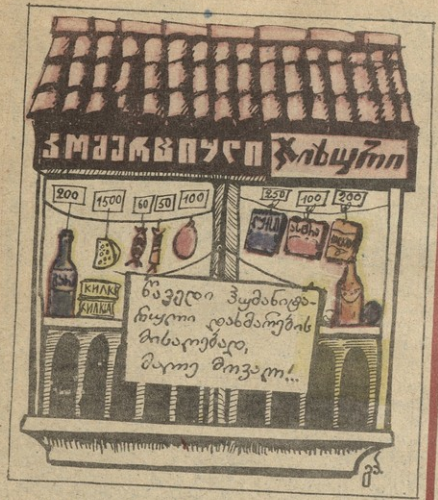 კომერციული ჯიხური
200 1500 60 50 100 250 100 200
ასტრა
КИЛКА
КИЛКА
წავედი ჰუმანიტა-
რული დახმარების
მისაღებად,
მალე მოვალ!..